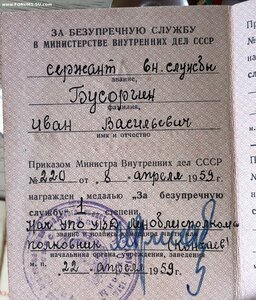 www.FORUMS-SU.com
ЗА БЕЗУПРЕЧНУЮ СЛУЖБУ
В МИНИСТЕРСТВЕ ВНУТРЕННИХ ДЕЛ СССР
сержант вн. службы
звание,
Бусоргин
фамилия,
Иван Васильевич
имя и отчество
Приказом Министра Внутренних Дел СССР
№ 220 от „8" апреля 1959 г.
награжден медалью „За безупречную
службу" I степени.
Нач УПО УВД облисполкома
полковник
звание и подпись командира части
начальника органа, учреждения, заведения
м. п. 22 апреля 1959 г.